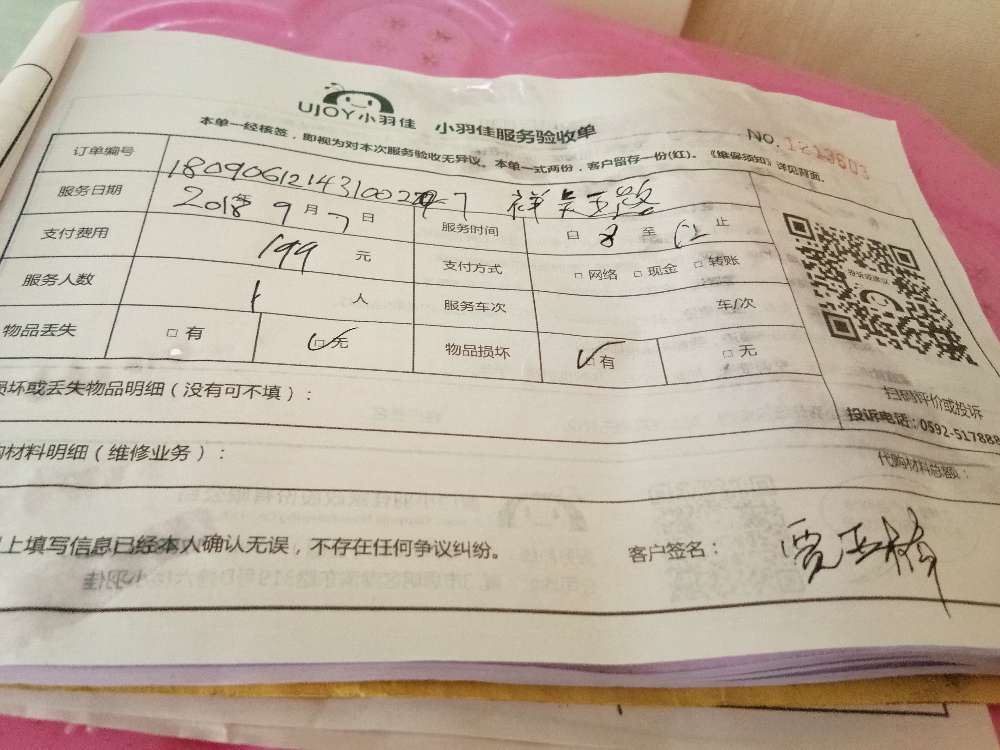 UJOY小羽佳 小羽佳服务验收单
NO.
本单一经核签，即视为对本次服务验收无异议。本单一式两份，客户留存一份(红)。《维保须知》详见背面。
订单编号
服务日期 2018年9月7日 服务时间 自 8 至 12 止
支付费用 199 元 支付方式 □ 网络 □ 现金 □ 转账
服务人数 1 人 服务车次 车/次
物品丢失 □ 有 □ 无 物品损坏 □ 有 □ 无
损坏或丢失物品明细（没有可不填）：
扫码评价或投诉
投诉电话：0592-517888
购材料明细（维修业务）：
代购材料总额：
上填写信息已经本人确认无误，不存在任何争议纠纷。 客户签名：